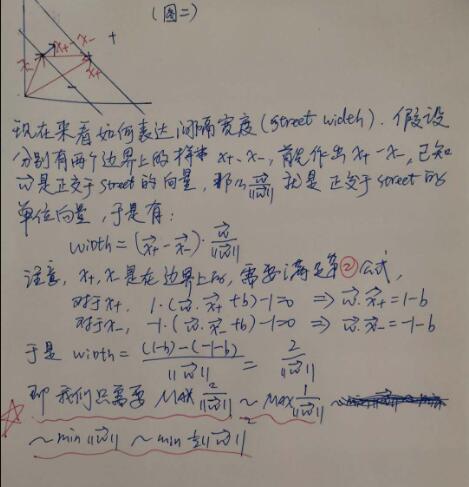 (图二)
x₋ x₊ - x₋ +
x₊
-
现在来看如何表达间隔宽度(street width). 假设
分别有两个边界上的样本 x₊、x₋, 首先作出 x₊ - x₋, 已知
w⃗是正交于street的向量, 那么 w⃗/||w⃗|| 就是正交于street的
单位向量, 于是有:
width = (x⃗₊ - x⃗₋)· w⃗/||w⃗||
注意, x₊, x₋是在边界上的, 需要满足第②公式,
对于x₊, 1·(w⃗·x⃗₊+b)-1=0 ⇒ w⃗·x⃗₊=1-b
对于x₋, -1·(w⃗·x⃗₋+b)-1=0 ⇒ w⃗·x⃗₋=-1-b
于是 width = ((1-b)-(-1-b))/||w⃗|| = 2/||w⃗||
即我们只需要 MAX 2/||w⃗|| ~ MAX 1/||w⃗||
~ min ||w⃗|| ~ min ½||w⃗||²